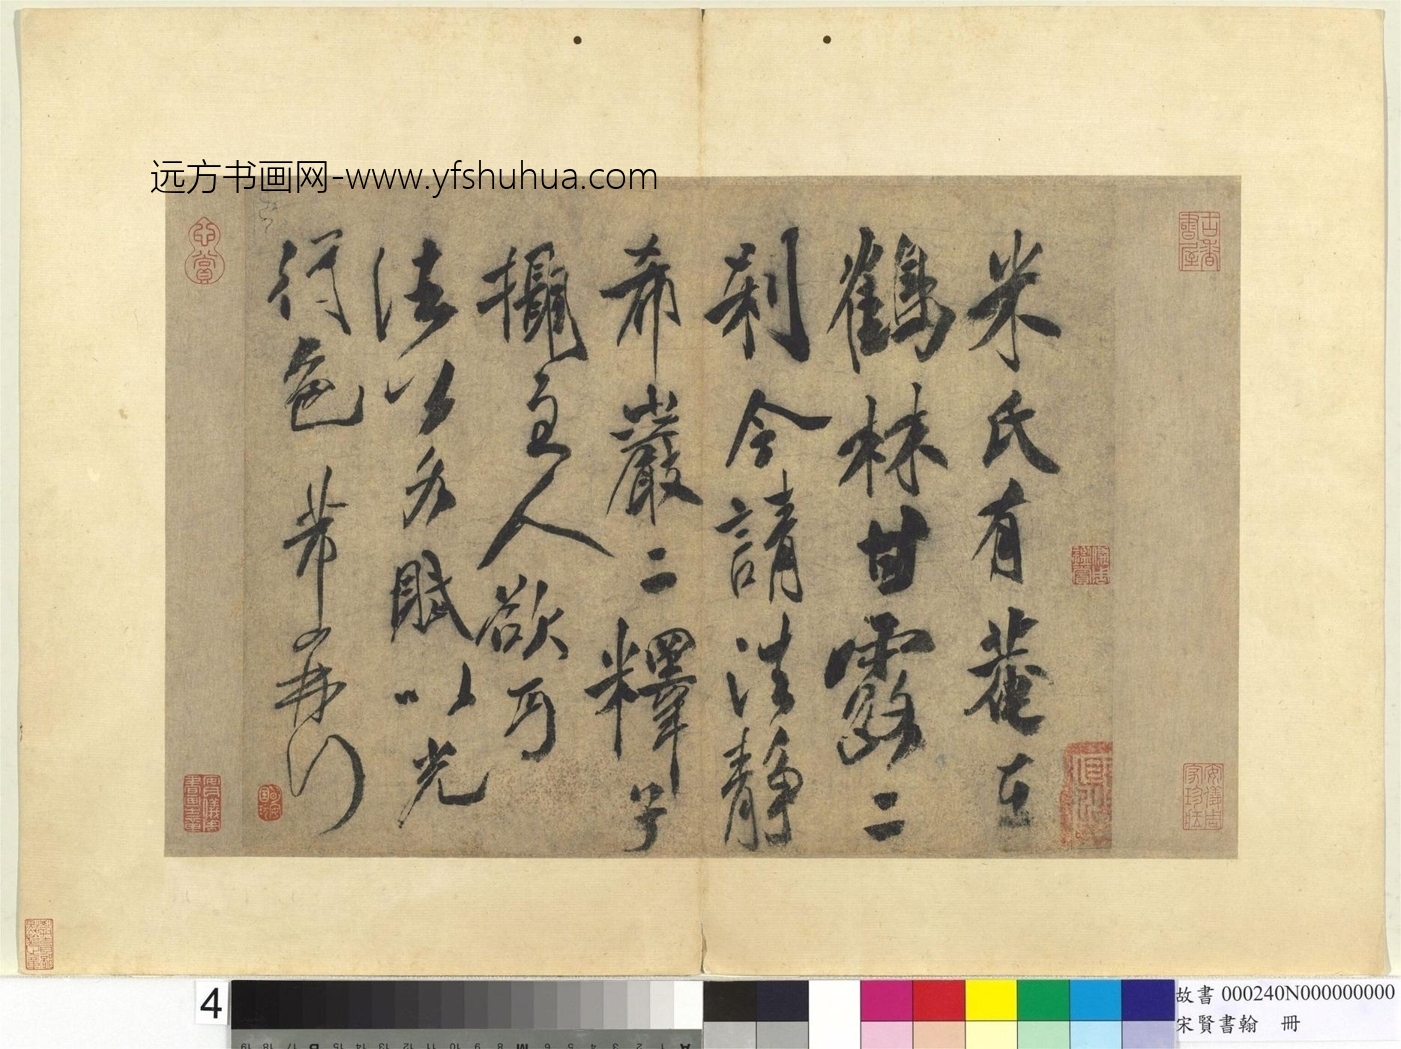 远方书画网-www.yfshuhua.com
米氏有菴在
鶴林甘露二
刹今請法靜
希巖二釋子
攝主人欲可
法以多賦以光
行色 芾再
4
故書 000240N000000000
宋賢書翰 冊